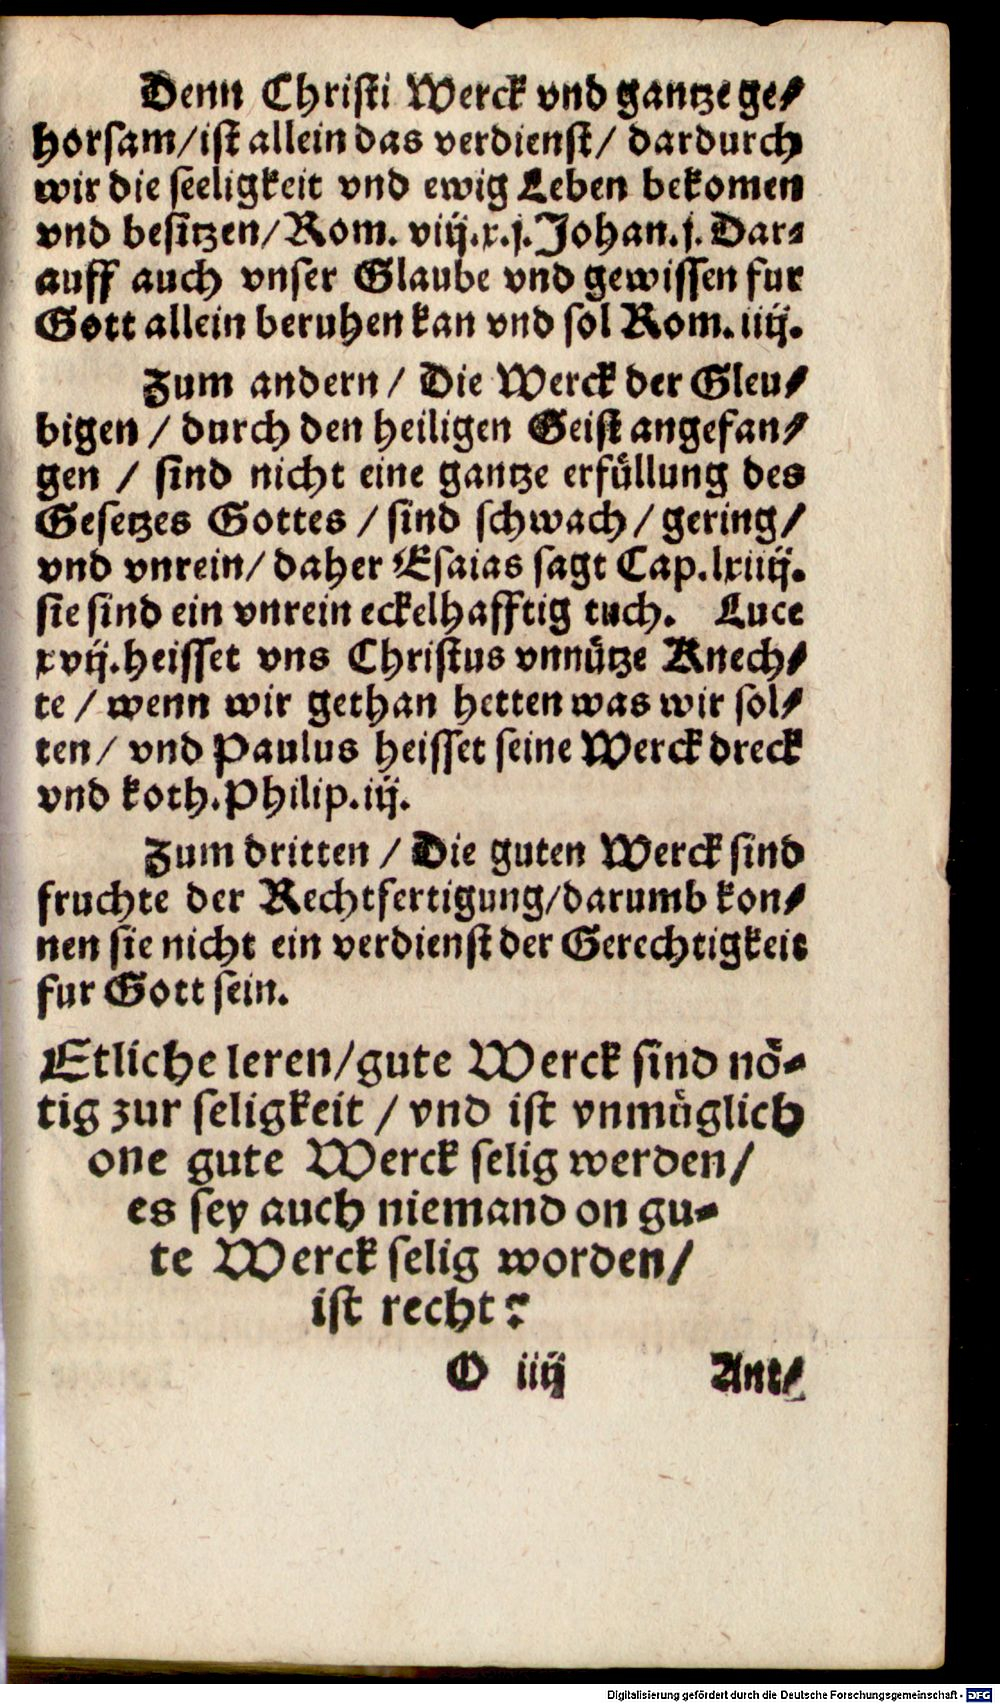 Denn Christi Werck vnd gantze ge/
horsam/ist allein das verdienst/ dardurch
wir die seeligkeit vnd ewig Leben bekomen
vnd besitzen/Rom. viij.x.j.Johan.j. Dar-
auff auch vnser Glaube vnd gewissen fur
Gott allein beruhen kan vnd sol Rom. iiij.
Zum andern / Die Werck der Gleu/
bigen / durch den heiligen Geist angefan/
gen / sind nicht eine gantze erfüllung des
Gesetzes Gottes / sind schwach / gering /
vnd vnrein/ daher Esaias sagt Cap. lxiiij.
sie sind ein vnrein eckelhafftig tuch. Luce
xvij.heisset vns Christus vnnütze Knech/
te / wenn wir gethan hetten was wir sol/
ten / vnd Paulus heisset seine Werck dreck
vnd koth.Philip.iij.
Zum dritten / Die guten Werck sind
fruchte der Rechtfertigung/darumb kon/
nen sie nicht ein verdienst der Gerechtigkeit
fur Gott sein.
Etliche leren/gute Werck sind nö-
tig zur seligkeit / vnd ist vnmüglich
one gute Werck selig werden/
es sey auch niemand on gu-
te Werck selig worden/
ist recht?
O iiij Ant/
Digitalisierung gefördert durch die Deutsche Forschungsgemeinschaft - DFG